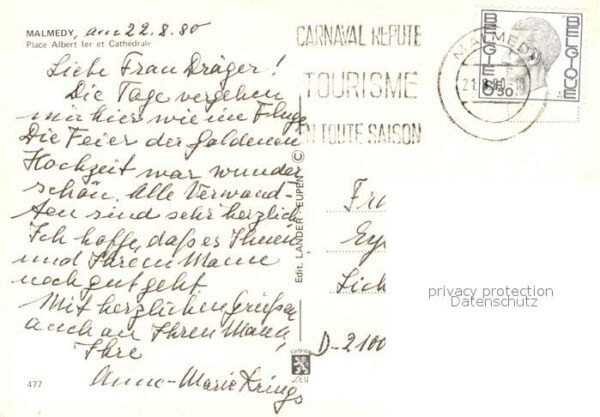 MALMEDY, am 22.8.80
Place Albert Ier et Cathédrale
Liebe Frau Dräger!
Die Tage vergehen
mir hier wie im Fluge
Die Feier der Goldenen
Hochzeit war wunder
schön. Alle Verwand-
ten sind sehr herzlich
Ich hoffe, daß es Ihnen
und Ihrem Manne
noch gut geht
Mit herzlichen Grüßen
auch an Ihren Mann,
Ihre
Anne-Marie Krings
477
Edit. LANDER - EUPEN ©
CARNAVAL REPUTE
TOURISME
EN TOUTE SAISON
MALMEDY
BELGIE
BELGIQUE
6 50
Fr
Ey
D-2100
privacy protection
Datenschutz